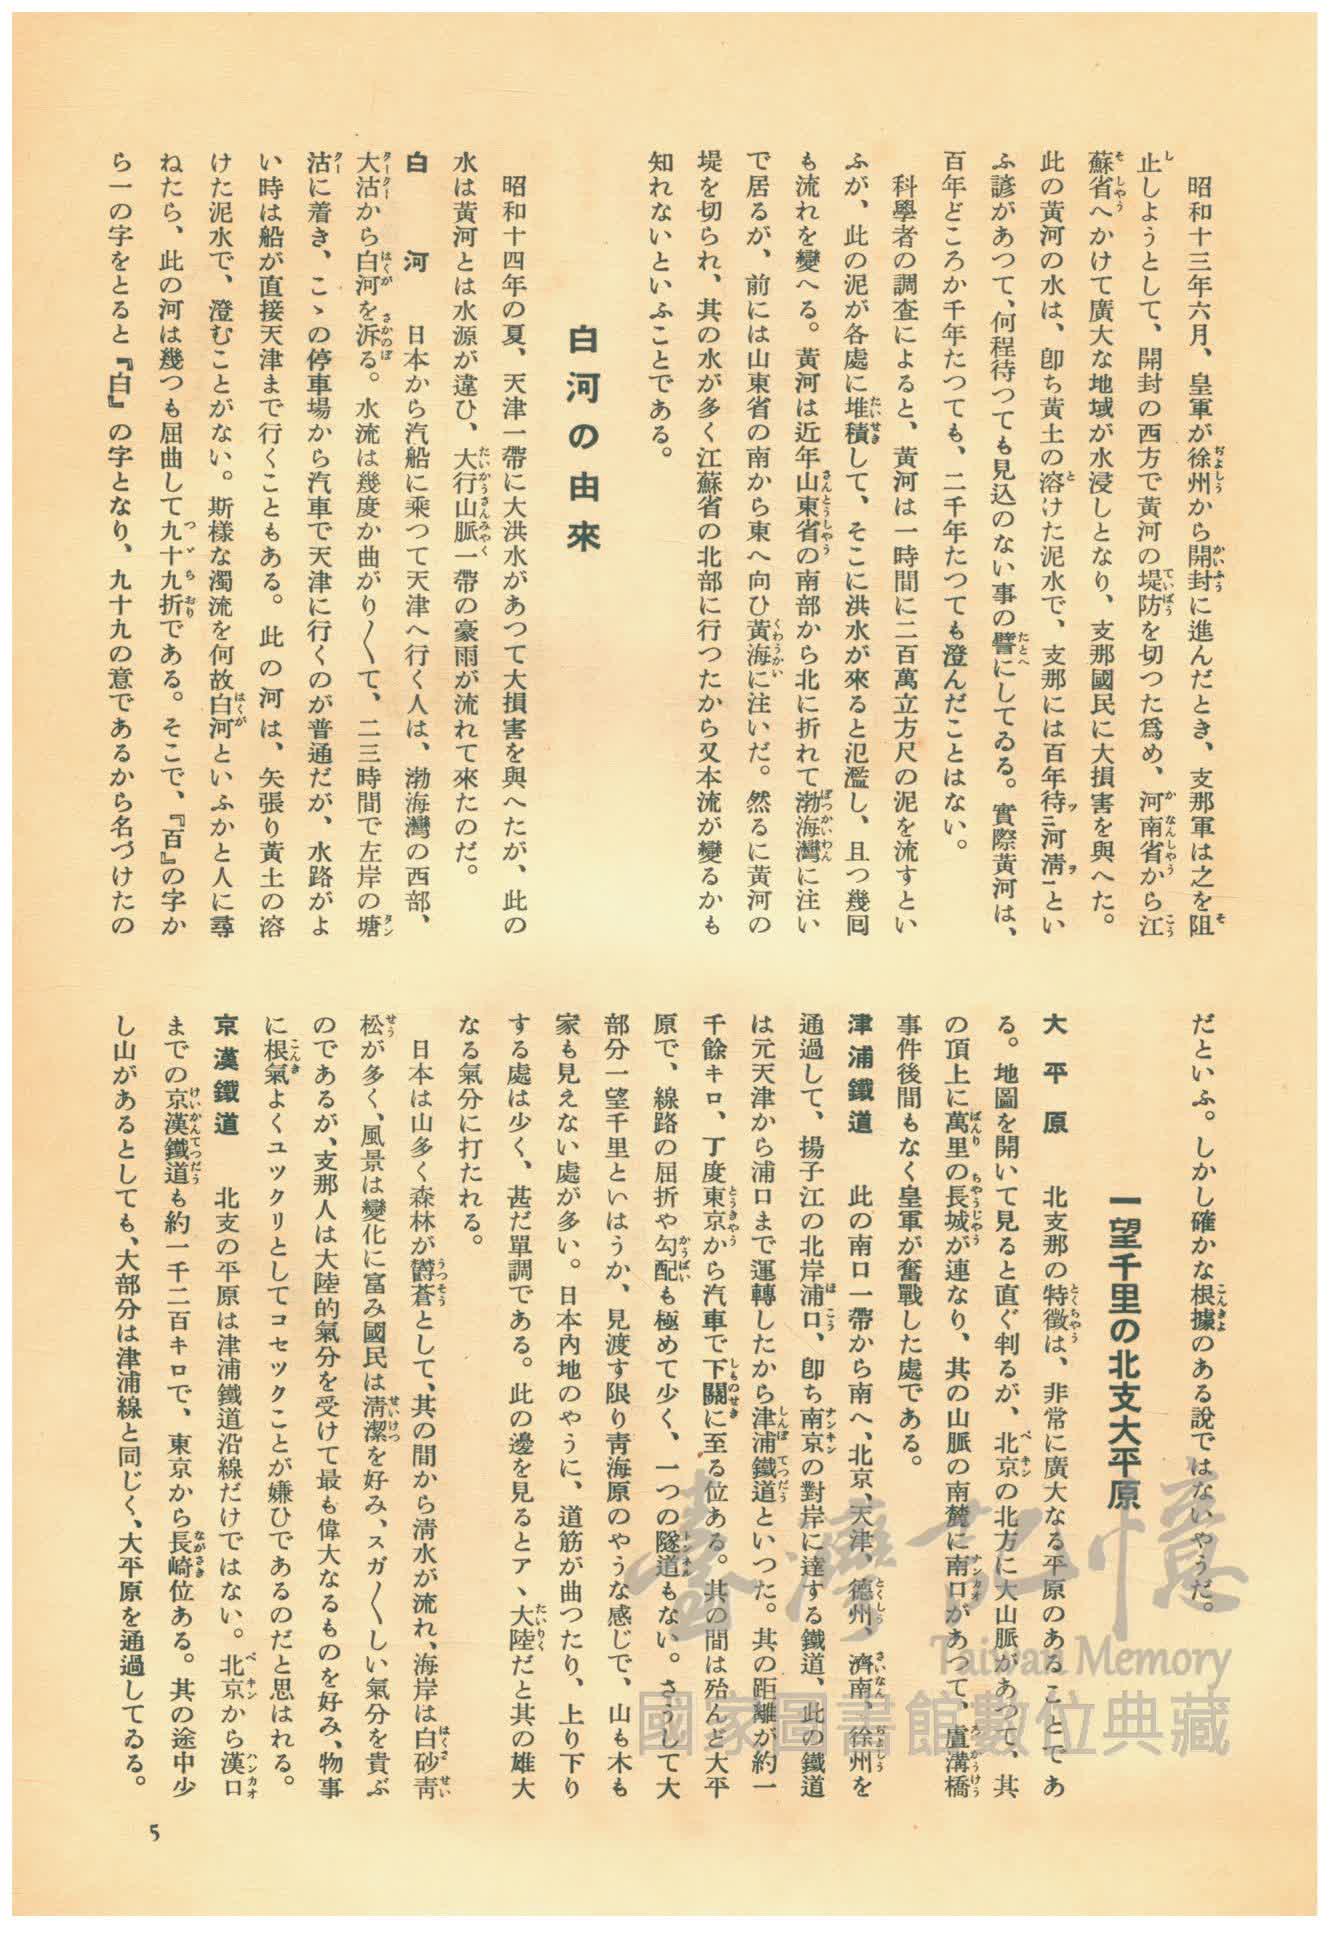 昭和十三年六月、皇軍が徐州から開封に進んだとき、支那軍は之を阻
止しようとして、開封の西方で黃河の堤防を切つた爲め、河南省から江
蘇省へかけて廣大な地域が水浸しとなり、支那國民に大損害を與へた。
此の黃河の水は、卽ち黃土の溶けた泥水で、支那には百年待ツニ河淸ヲ一とい
ふ諺があつて、何程待つても見込のない事の譬にしてゐる。實際黃河は、
百年どころか千年たつても、二千年たつても澄んだことはない。
科學者の調査によると、黃河は一時間に二百萬立方尺の泥を流すとい
ふが、此の泥が各處に堆積して、そこに洪水が來ると氾濫し、且つ幾囘
も流れを變へる。黃河は近年山東省の南部から北に折れて渤海灣に注い
で居るが、前には山東省の南から東へ向ひ黃海に注いだ。然るに黃河の
堤を切られ、其の水が多く江蘇省の北部に行つたから又本流が變るかも
知れないといふことである。
白河の由來
昭和十四年の夏、天津一帶に大洪水があつて大損害を與へたが、此の
水は黃河とは水源が違ひ、大行山脈一帶の豪雨が流れて來たのだ。
白河 日本から汽船に乘つて天津へ行く人は、渤海灣の西部、
大沽から白河を泝る。水流は幾度か曲がり〱て、二三時間で左岸の塘
沽に着き、こゝの停車場から汽車で天津に行くのが普通だが、水路がよ
い時は船が直接天津まで行くこともある。此の河は、矢張り黃土の溶
けた泥水で、澄むことがない。斯樣な濁流を何故白河といふかと人に尋
ねたら、此の河は幾つも屈曲して九十九折である。そこで、『百』の字か
ら一の字をとると『白』の字となり、九十九の意であるから名づけたの
だといふ。しかし確かな根據のある說ではないやうだ。
一望千里の北支大平原
大平原 北支那の特徵は、非常に廣大なる平原のあることであ
る。地圖を開いて見ると直ぐ判るが、北京の北方に大山脈があつて、其
の頂上に萬里の長城が連なり、其の山脈の南麓に南口があつて、盧溝橋
事件後間もなく皇軍が奮戰した處である。
津浦鐵道 此の南口一帶から南へ、北京、天津、德州、濟南、徐州を
通過して、揚子江の北岸浦口、卽ち南京の對岸に達する鐵道、此の鐵道
は元天津から浦口まで運轉したから津浦鐵道といつた。其の距離が約一
千餘キロ、丁度東京から汽車で下關に至る位ある。其の間は殆んど大平
原で、線路の屈折や勾配も極めて少く、一つの隧道もない。さうして大
部分一望千里といはうか、見渡す限り靑海原のやうな感じで、山も木も
家も見えない處が多い。日本內地のやうに、道筋が曲つたり、上り下り
する處は少く、甚だ單調である。此の邊を見るとア、大陸だと其の雄大
なる氣分に打たれる。
日本は山多く森林が欝蒼として、其の間から淸水が流れ、海岸は白砂靑
松が多く、風景は變化に富み國民は淸潔を好み、スガ〱しい氣分を貴ぶ
のであるが、支那人は大陸的氣分を受けて最も偉大なるものを好み、物事
に根氣よくユツクリとしてコセツクことが嫌ひであるのだと思はれる。
京漢鐵道 北支の平原は津浦鐵道沿線だけではない。北京から漢口
までの京漢鐵道も約一千二百キロで、東京から長崎位ある。其の途中少
し山があるとしても、大部分は津浦線と同じく、大平原を通過してゐる。
5
臺灣記憶
Taiwan Memory
國家圖書館數位典藏